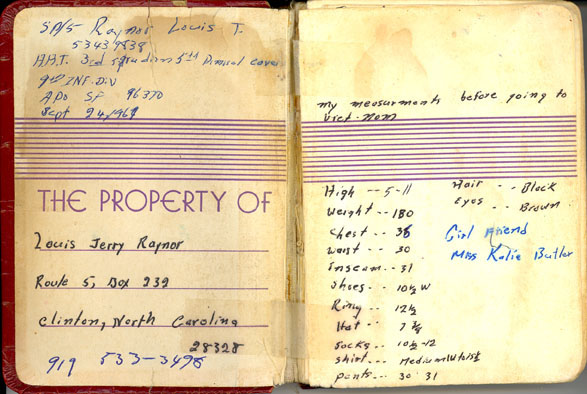 SP/5 Raynor Louis T.
53439838
H.H.T. 3rd sqradron 5th Armical cover
9th INF. Div
APO SF 96370
Sept 24, 1969
THE PROPERTY OF
Louis Jerry Raynor
Route 5, Box 232
Clinton, North Carolina
28328
919 533-3498
my measurments before going to
Viet-Nam
High -- 5-11
Weight -- 180
Chest -- 36
Waist -- 30
Inseam -- 31
Shoes -- 10½ W
Ring -- 12½
Hat -- 7 ¾
Socks -- 10½-12
Shirt -- Medium
pants -- 30 31
Hair -- Black
Eyes -- Brown
Girl Friend
Miss Katie Butler